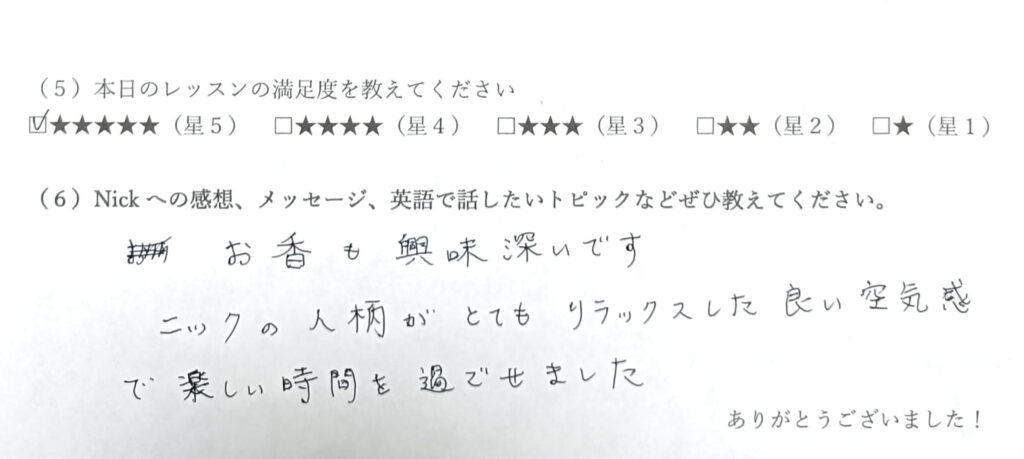 （５）本日のレッスンの満足度を教えてください
☑★★★★★（星５） □★★★★（星４） □★★★（星３） □★★（星２） □★（星１）
（６）Nick への感想、メッセージ、英語で話したいトピックなどぜひ教えてください。
お香も興味深いです
ニックの人柄がとてもリラックスした良い空気感
で楽しい時間を過ごせました
ありがとうございました！